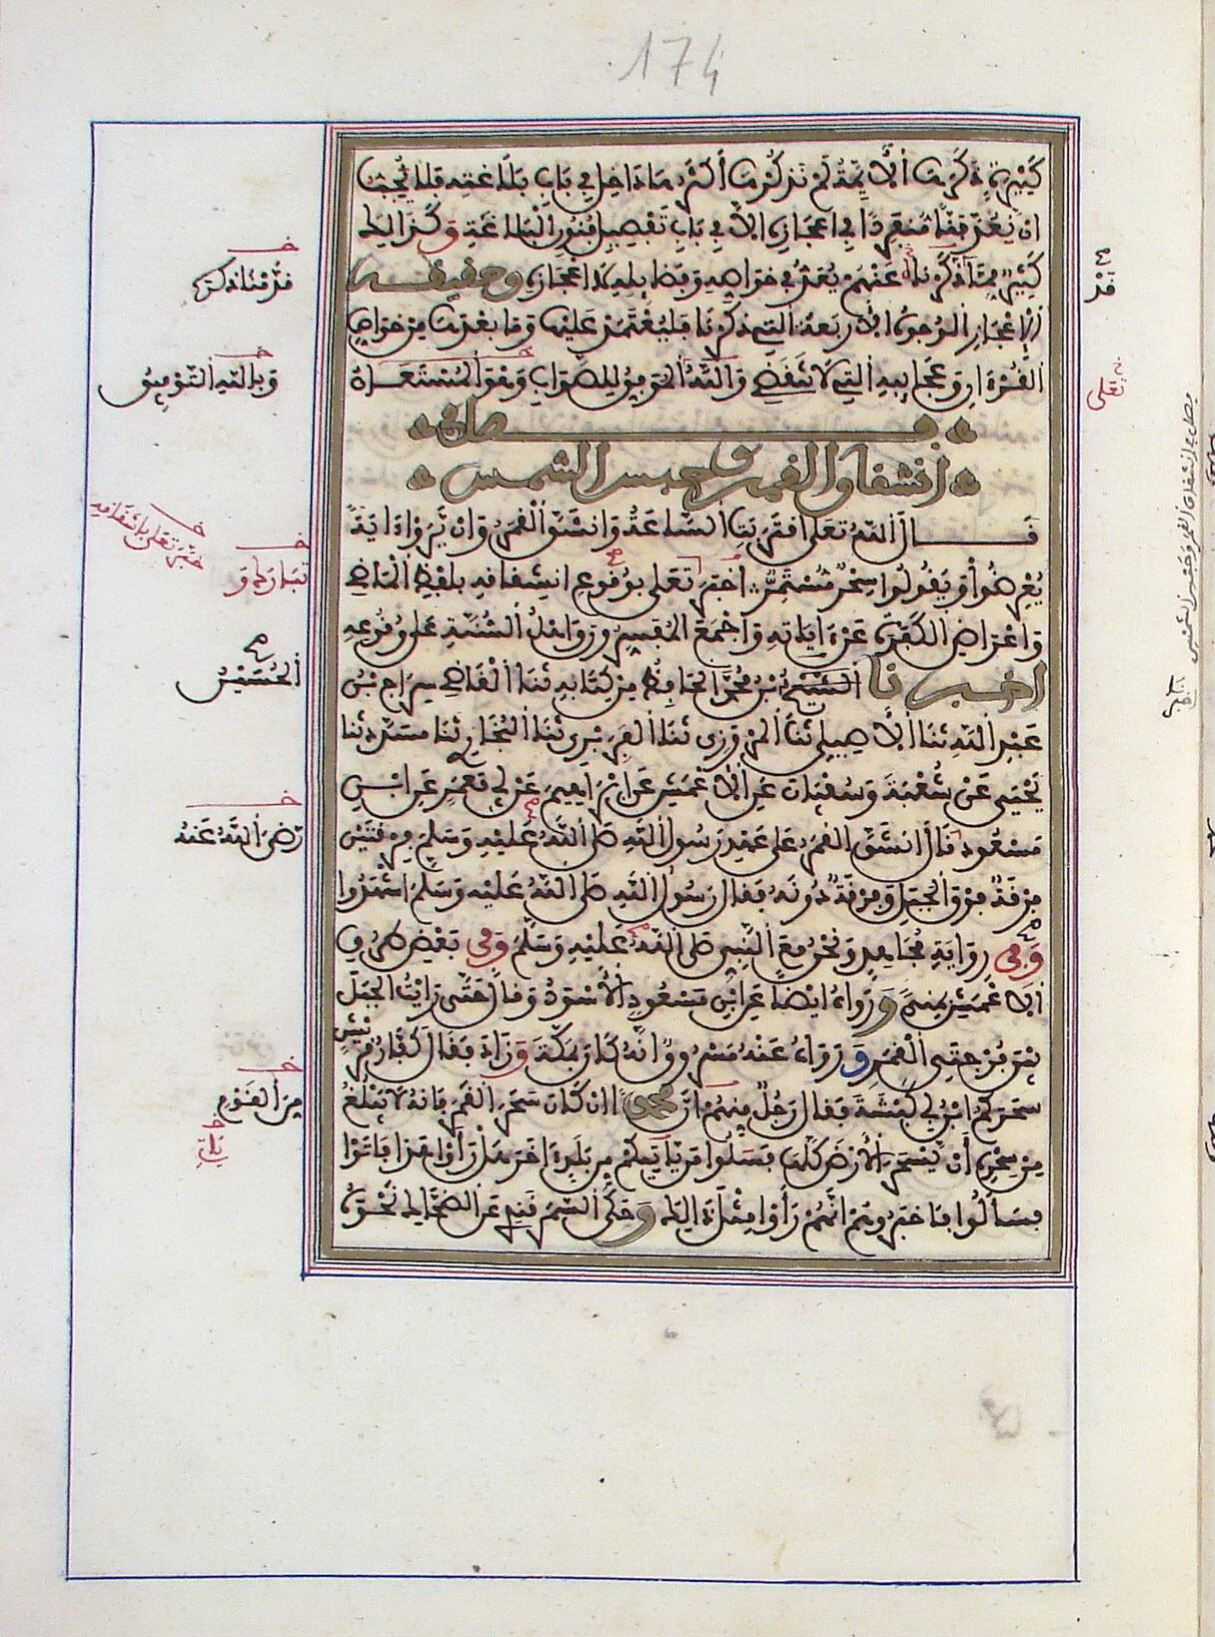 174
كثيرة ذكرها الأئمة لم نذكرها أكثرها داخل في باب بلاغته فلا يجب
ان يعد فنا منفردا في اعجازه الا في باب تفصيل فنون البلاغة وكذالك
كثير مما ذكرناه عنهم يعد في خواصه وفضايله لا اعجازه وحقيقة
الاعجاز الوجوه الأربعة التي ذكرنا فليعتمد عليها وما بعدها من خواص
القرءان وعجايبه التي لا تنقضي والله الموفق للصواب وهو المستعان
فصل في
انشقاق القمر وحبس الشمس
قال الله تعلى اقتربت الساعة وانشق القمر وان يروا ءاية
يعرضوا ويقولوا سحر مستمر اخبر تعلى بوقوع انشقاقه بلفظ الماضي
واعراض الكفرة عن ءاياته واجمع المفسرون وأهل السنة على وقوعه
اخبرنا الحسين بن محمد الحافظ من كتابه ثنا القاضي سراج بن
عبد الله ثنا الأصيلي ثنا المروزي ثنا الفربري ثنا البخاري ثنا مسدد ثنا
يحيى عن شعبة وسفيان عن الأعمش عن ابرهيم عن أبي معمر عن ابن
مسعود قال انشق القمر على عهد رسول الله صلى الله عليه وسلم فرقتين
فرقة فوق الجبل وفرقة دونه فقال رسول الله صلى الله عليه وسلم اشهدوا
وفي رواية مجاهد ونحن مع النبي صلى الله عليه وسلم وفي بعض طرق
الأعمش بمنى ورواه ايضا عن ابن مسعود الأسود وقال حتى رايت الجبل
بين فرجتي القمر ورواه عنه مسروق انه كان بمكة وزاد فقال كفار قريش
سحركم ابن أبي كبشة فقال رجل منهم ان محمدا ان كان سحر القمر فانه لا يبلغ
من سحره أن يسحر الأرض كلها فسلوا من ياتيكم من بلد ءاخر هل رأوا هذا فاتوا
فسألوا فاخبروهم انهم رأوا مثل ذالك وحكى السمرقندي عن الضحاك نحوه
قد
تعلى
قدمنا ذكره
وبالله التوفيق
تبارك و
الحسين
رضى الله عنه
من القوم